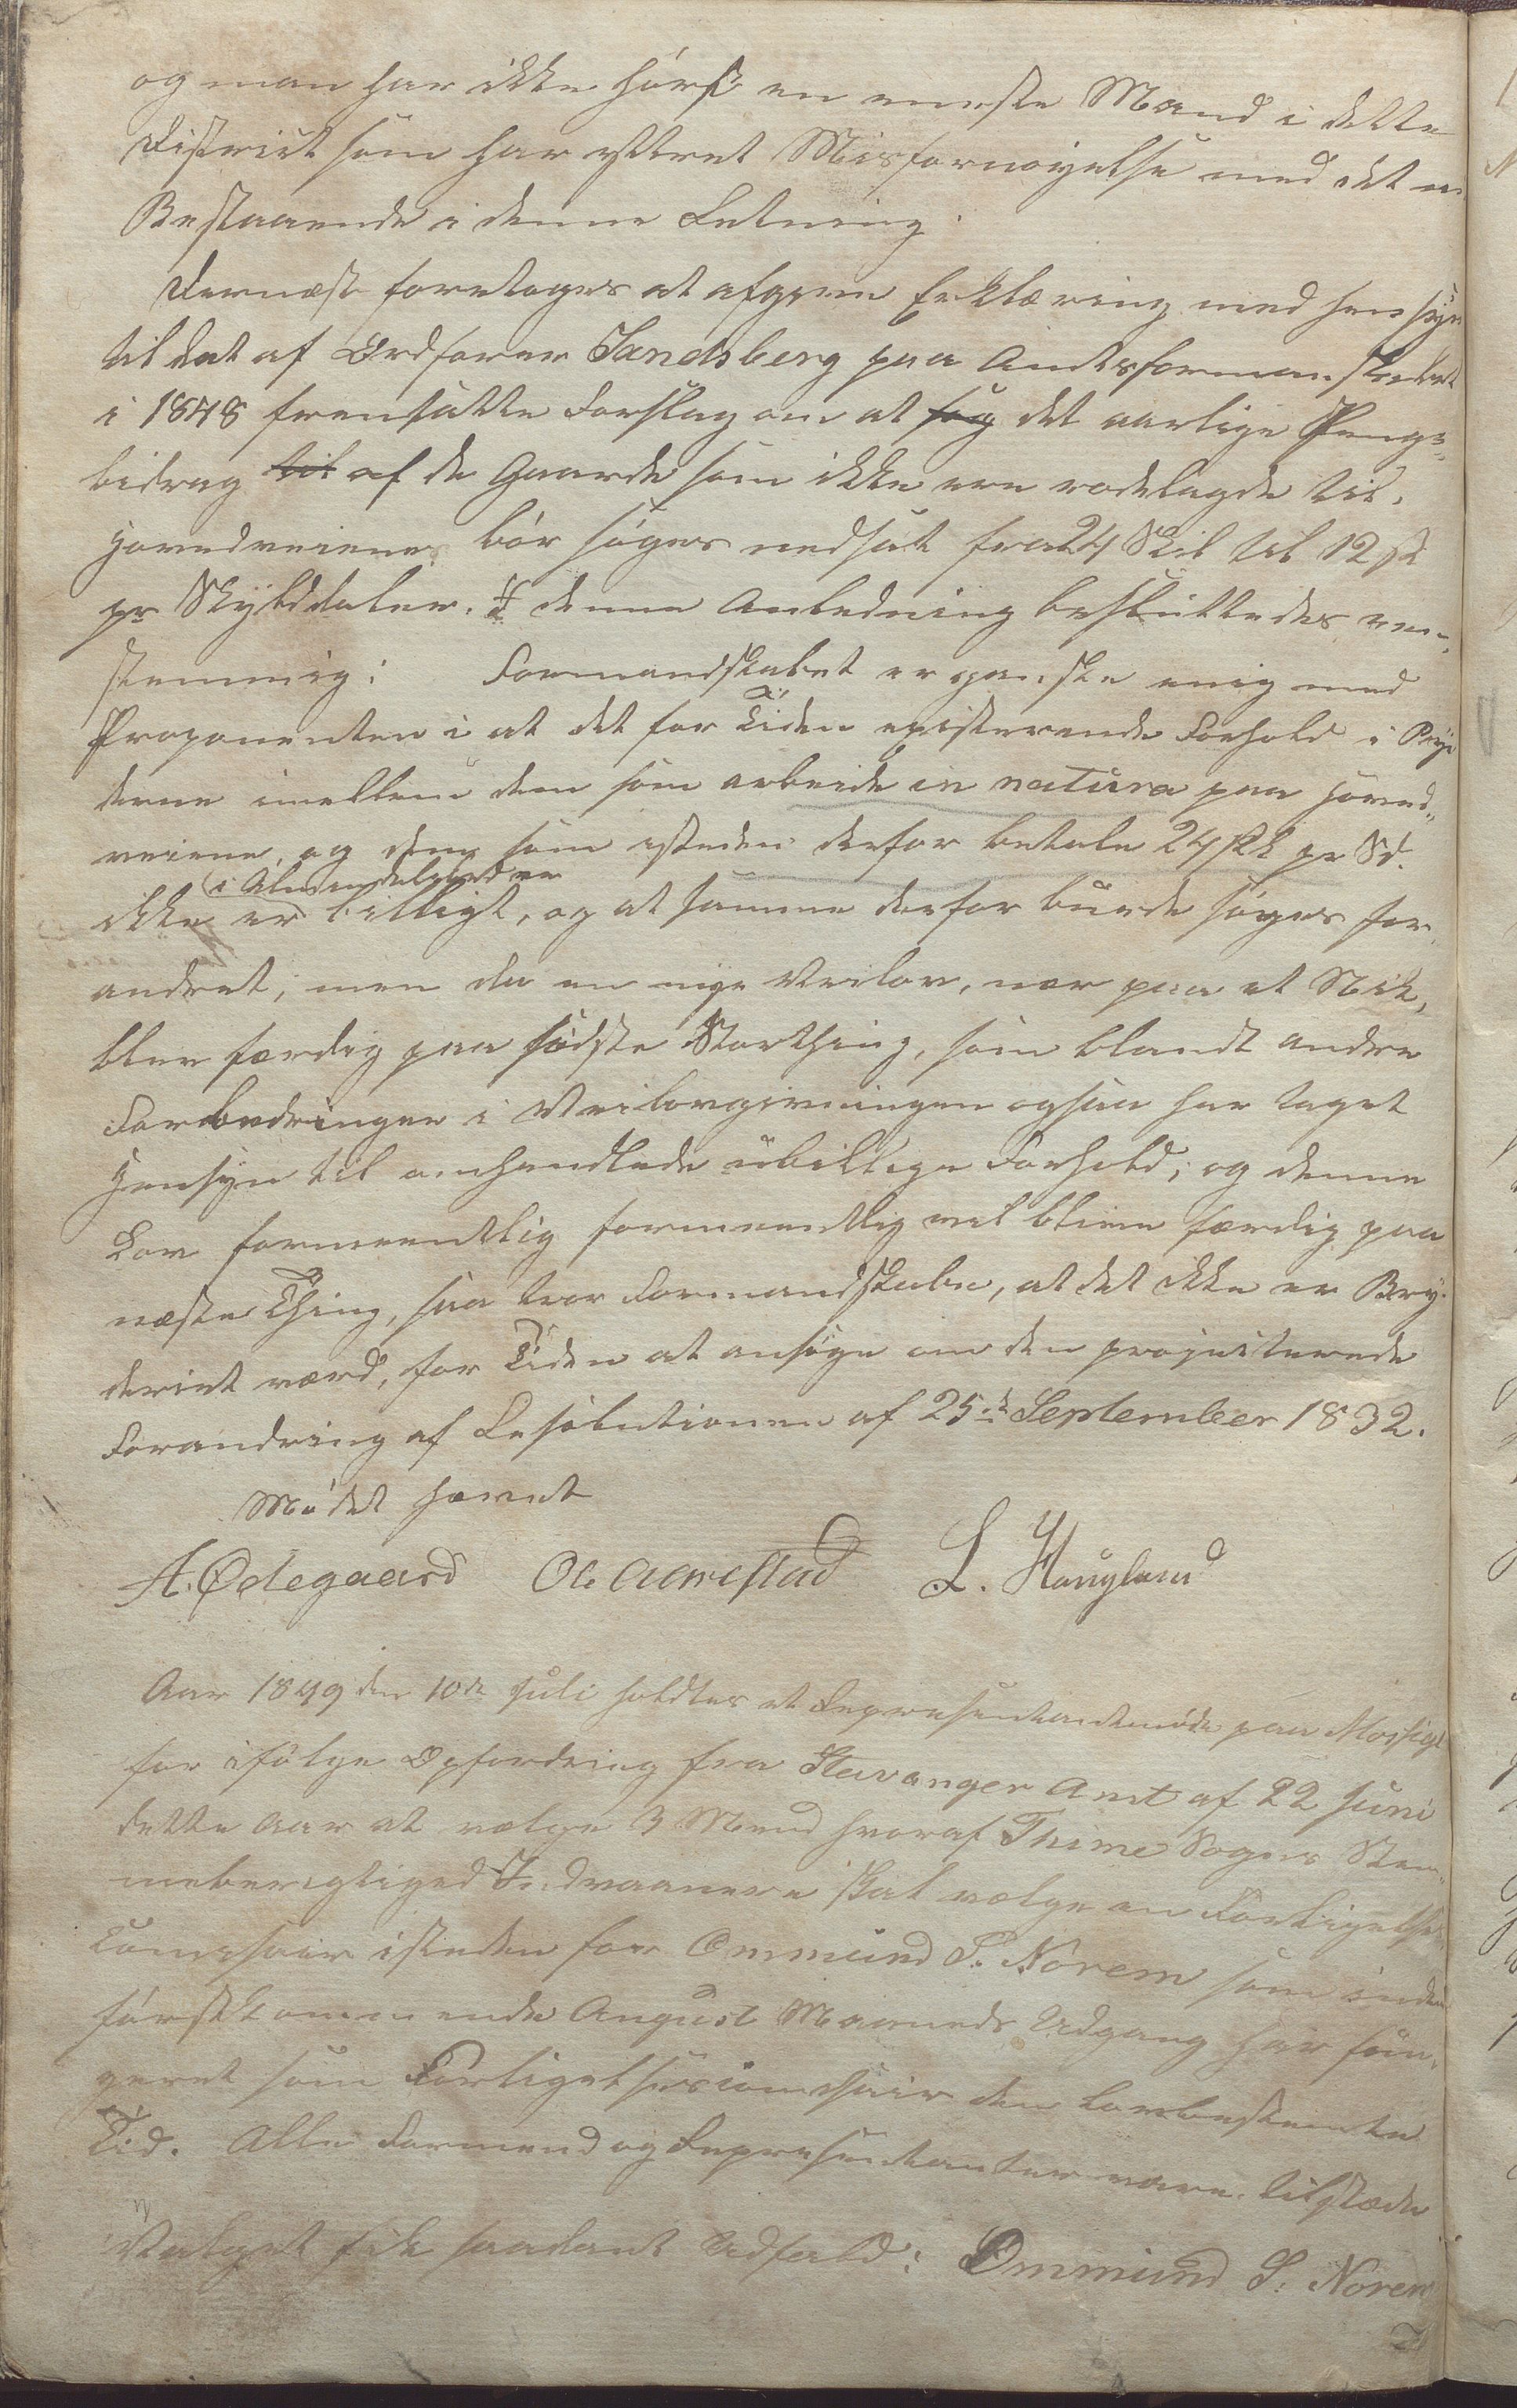 og man har ikke hørt en eneste Mand i dette
District som har yttret Misfornøyelse med det nu
Bestaaende i denne Retning.
Dernæst foretoges at afgive Erklæring med hensyn
til det af Ordfører Sandsberg paa Amtsformandskabet
i 1848 fremsatte Forslag om at søg det aarlige Penge-
bidrag til af de Gaarde som ikke ere rodelagde til
Hovedveiene, bør søges nedsat fra 24 Skil til 12 sk
pr Skylddaler. I denne Anledning besluttedes een-
stemmig: Formandskabet er ganske enig med
Proponenten i at det for Tiden existerende Forhold i Byr
derne imellem dem som arbeide in natura paa Hoved-
veiene, og dem som isteden derfor betale 24 sk pr Sd.
i Almindelighed
ikke er billigt, og at samme derfor burde søges for-
andret, men da en nye Veilov, nær paa et Nik,
blev færdig paa sidste Storthing, som blandt andre
Forbedringer i Veilovgivningen ogsaa har taget
Hensyn til omhandlede ubillige Forhold; og denne
Lov formeentlig formeentlig vil blive færdig paa
næste Thing, saa troer Formandskabe, at det ikke er Bry-
deriet værd, for Tiden at ansøge om den projecterede
Forandring af Resolutionen af 25de September 1832.
Mødet hævet
A. Ødegaard Ole Aarestad L. Hougland
Aar 1849 den 10de Juli holdtes et Representantmøde paa Mossige
for ifølge Opfordring fra Stavanger Amt af 22 Juni
dette Aar at vælge 3 Mænd hvoraf Thime Sogns Stem-
meberigtiged Indvaanere skal vælge en Forligelses
Comissair isteden for Ommund S. Norem som inden
førstkommende August Maaneds Udgang har fun-
geret som Forligelsescomissair den lovbestemte
Tid. Alle Formænd og Representanter vare tilstæde
Valget fik saadant Udfald: Ommund S. Norem